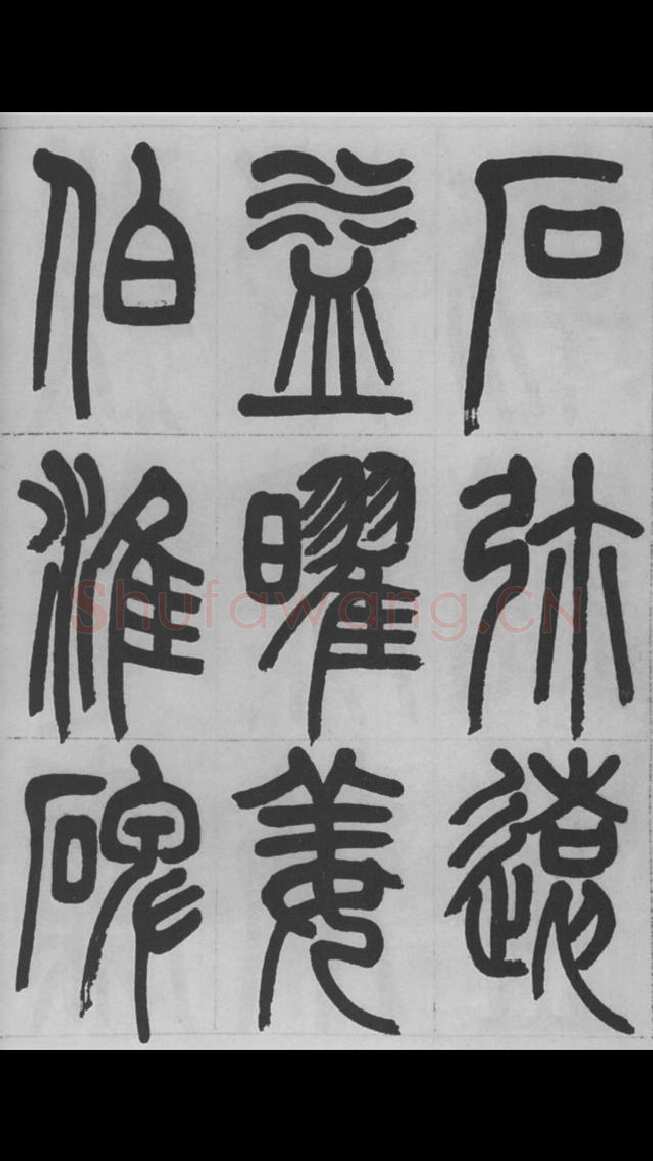 石弥遠
益曜姜
伯淮碑
Shufawang.CN